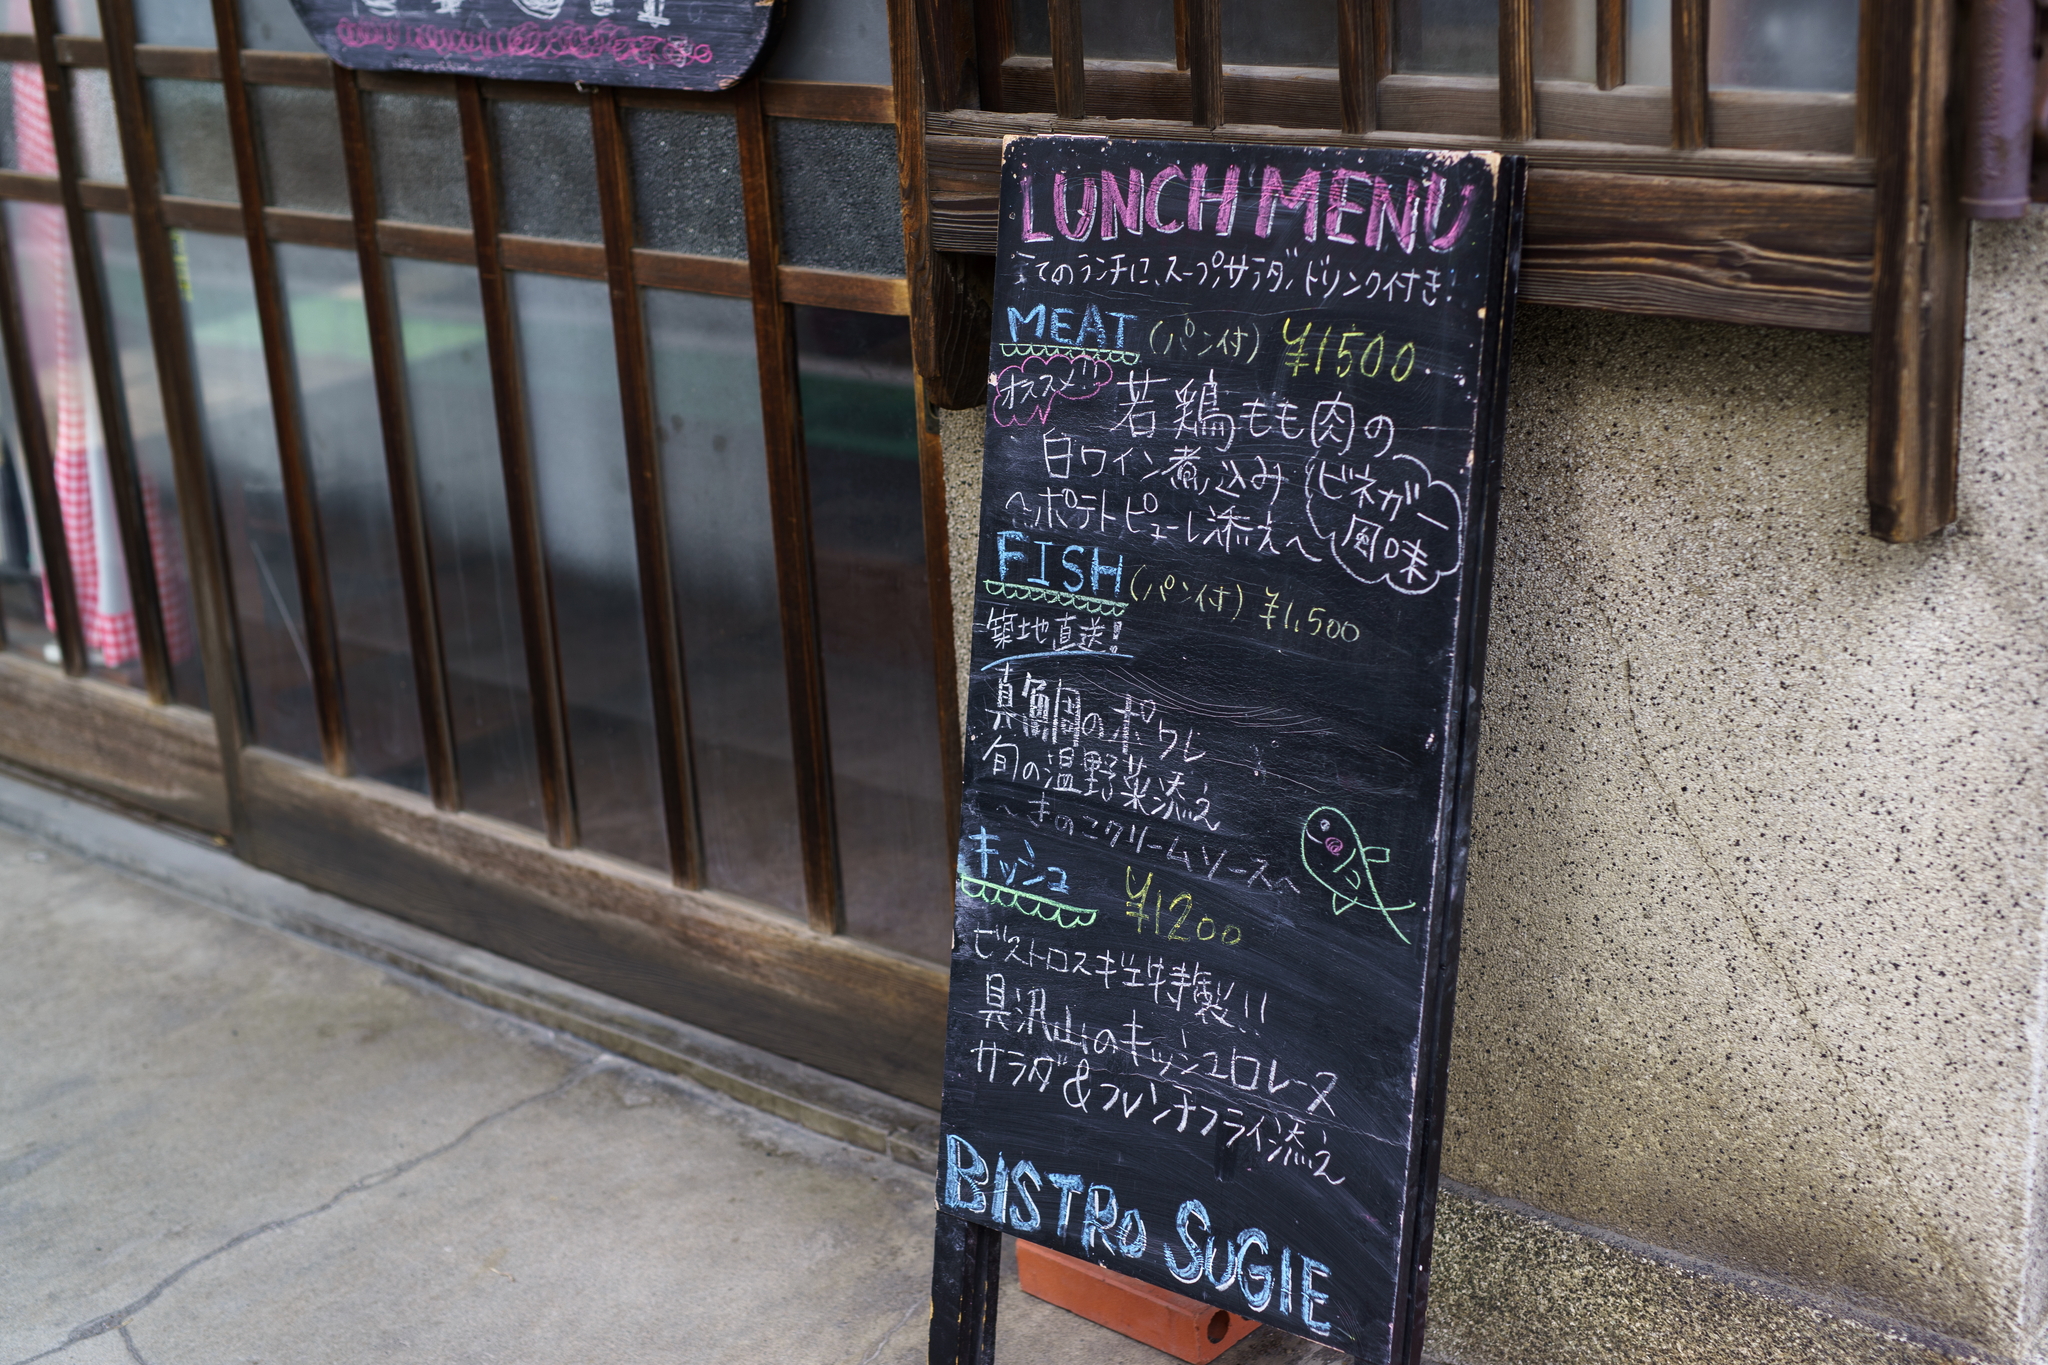 LUNCH MENU
全てのランチに、スープ、サラダ、ドリンク付き!
MEAT (パン付) ¥1500
オススメ!!
若鶏もも肉の
白ワイン煮込み
ビネガー風味
〜ポテトピューレ添え〜
FISH (パン付) ¥1,500
築地直送!
真鯛のポワレ
旬の温野菜添え
〜きのこクリームソース〜
キッシュ ¥1200
ビストロスギヱ特製!!
具沢山のキッシュロレーヌ
サラダ&フレンチフライ添え
BISTRO SUGIE